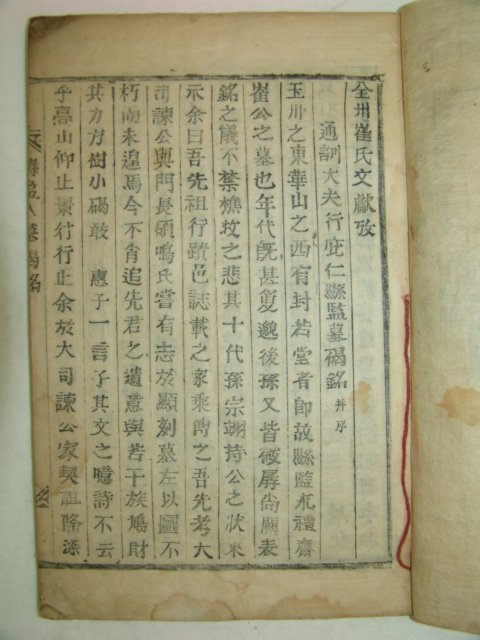 全州崔氏文獻攷
通訓大夫行庇仁縣監墓碣銘 幷序
玉川之東華山之西有封若堂者卽故縣監永禮齋
崔公之墓也年代旣甚夐邈後孫又皆微孱尙闕表
銘之儀不禁樵坟之悲其十代孫宗翊持公之狀來
示余曰吾先祖行蹟邑誌載之家乘傳之吾先考大
司諫公與門長碩鳴氏嘗有志於顯刻墓左以圖不
朽而未遑焉今不肖追先君之遺意與若干族鳩財
其力方樹小碣敢 惠子一言子其文之噫詩不云
乎高山仰止景行行止余於大司諫公家契誼隆深
縣監公墓碣銘